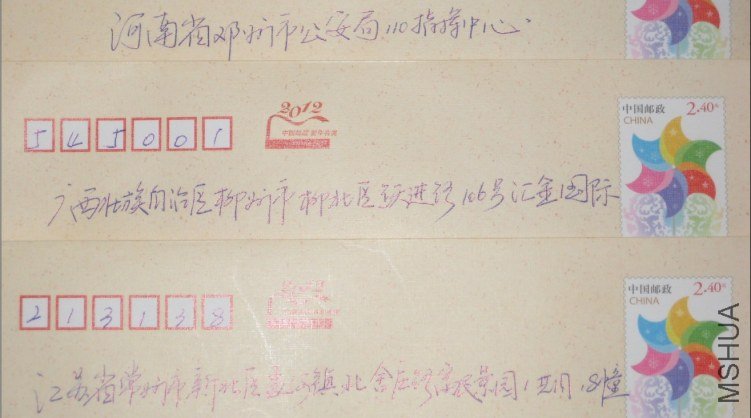 河南省邓州市公安局110指挥中心
545001
2012
中国邮政 贺年有奖
中国邮政
CHINA
2.40元
广西壮族自治区柳州市柳北区跃进路106号汇金国际
213138
中国邮政
CHINA
2.40元
江苏省常州市新北区 镇北 路 园 18幢
MSHUA